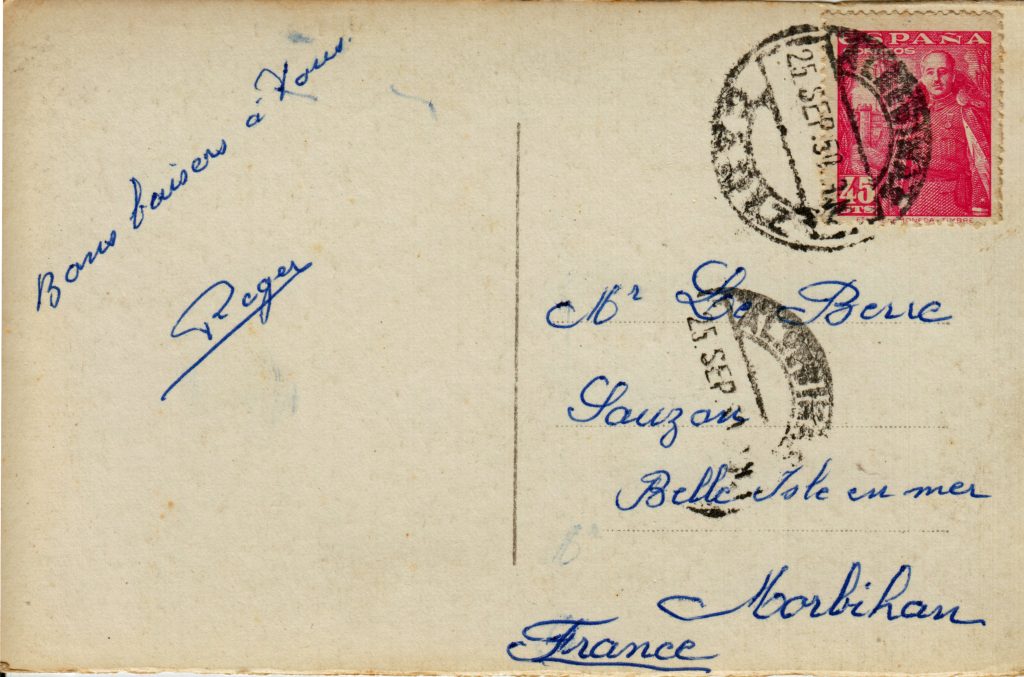 Bons baisers à Tous.
Roger
ESPAÑA
CORREOS
45
CTS
25 SEP.50
Mr Le Berre
25 SEP
Sauzon
Belle Isle en mer
Morbihan
France